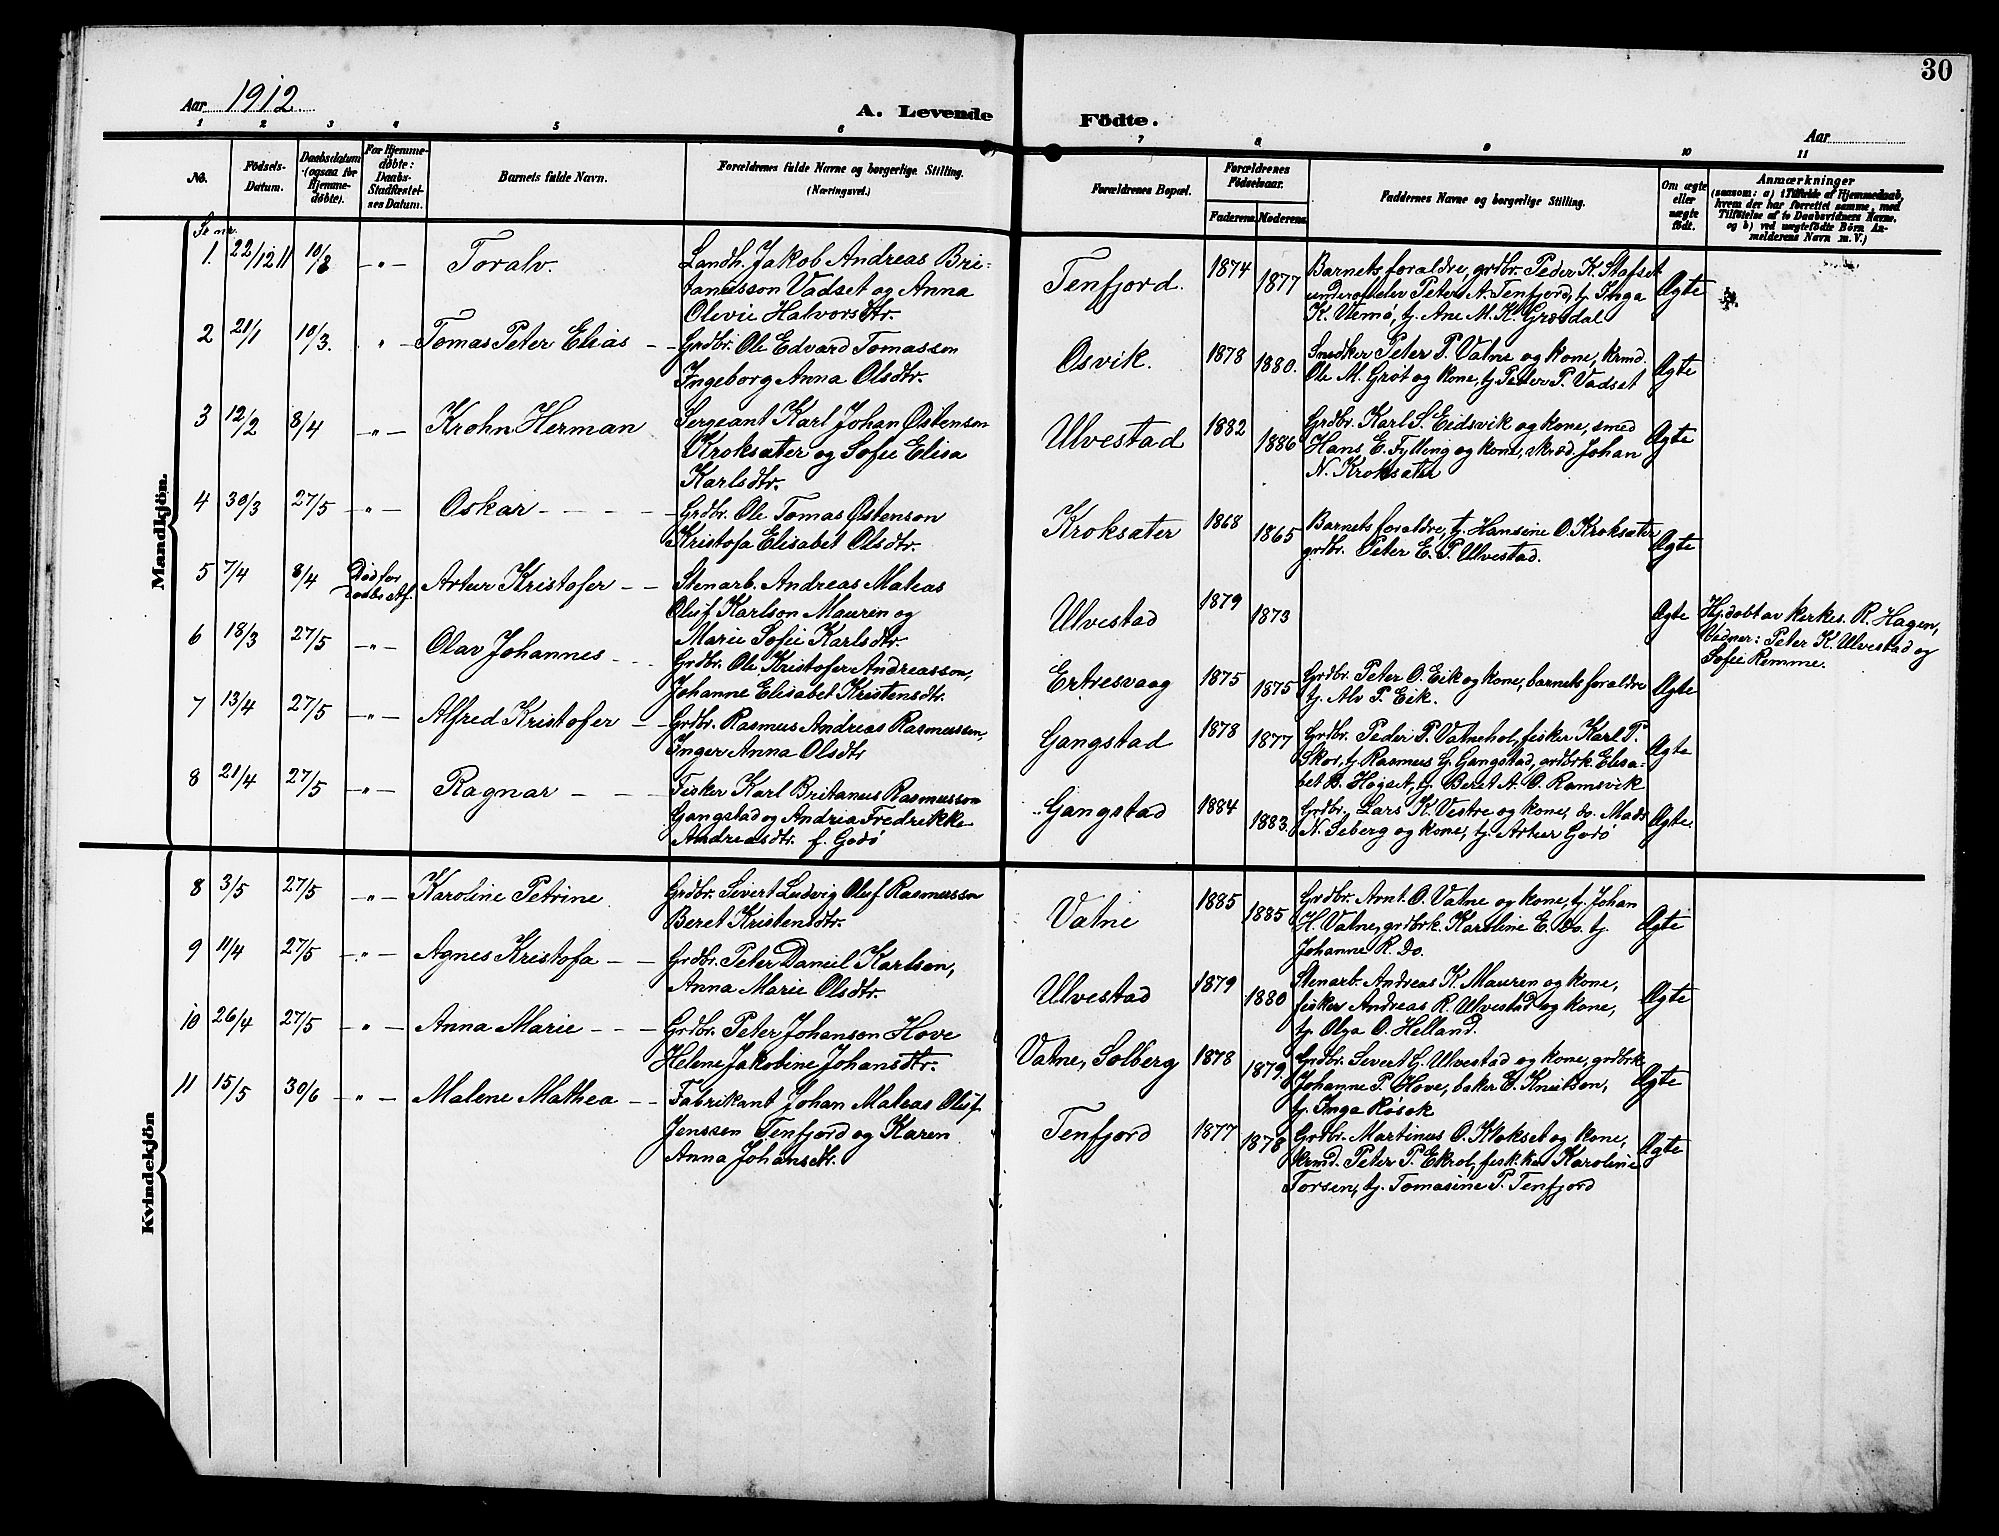 30
Aar 1912
A. Levende
Födte.
Aar
1 2 3 4 5 6 7 8 9 10 11
No.
Födsels-
Datum.
Daabsdatum
(ogsaa for
Hjemme-
døbte).
For Hjemme-
døbte:
Daabs-
Stadfæstel-
ses Datum.
Barnets fulde Navn.
Forældrenes fulde Navne og borgerlige Stilling.
(Næringsvei.)
Forældrenes Bopæl.
Forældrenes
Fødselsaar.
Faderens. Moderens.
Faddernes Navne og borgerlige Stilling.
Om ægte
eller
uægte
født.
Anmærkninger
(saasom: a) i Tilfælde af Hjemmedaab,
hvem der har forrettet samme, med
Tilføielse af to Daabsvidners Navne,
og b) ved uægtefødte Børn An-
melderens Navn m. V.)
Mandkjön.
1. 22/12 11 10/3 - " - Toralv.
Landh. Jakob Andreas Bri-
tanusson Vadset og Anna
Olevie Halvorsdtr.
Tenfjord. 1874 1877
Barnets foraldre, grdbr. Peder K. Stafset
Peter A. Tenfjord, tj. Inga
K. Vemø, tj. Ane M. K. Græsdal
Ægte
2 21/1 10/3. " - Tomas Peter Elias - -
Grdbr. Ole Edvard Tomassen
Ingeborg Anna Olsdtr.
Osvik. 1878 1880.
Snedker Peter P. Vatne og kone, krmd.
Ole M. Grøt og kone, tj. Peter P. Vadset
Ægte
3 12/2 8/4 - " - Krohn Herman
Sergeant Karl Johan Østenson
Kroksæter og Sofie Elisa
Karlsdtr.
Ulvestad 1882 1886
Grdbr. Karl S. Eidsvik og kone, smed
Hans E. Fylling og kone, skræd. Johan
N. Kroksæter
Ægte
4 30/3 27/5 - " - Oskar - - - -
Grdbr. Ole Tomas Østenson
Kristofa Elisabet Olsdtr.
Kroksæter 1868 1865
Barnets foraldre, tj. Hansine O. Kroksæter
grdbr. Peter E. P. Ulvestad.
Ægte
5 7/4 8/4 Død før
Artur Kristofer - -
Stenarb. Andreas Mateas
Oluf Karlson Mauren og
Marie Sofie Karlsdtr.
Ulvestad 1879 1873
Ægte
Hj.døbt av kirkes. R. Hagen,
Vidner: Peter K. Ulvestad og
Sofie Remme.
6 18/3 27/5 - " - Olav Johannes - - -
Grdbr. Ole Kristofer Andreasson,
Johanne Elisabet Kristensdtr.
Ertresvaag 1875 1875
Grdbr. Peter O. Eik og kone, barnets foraldre
tj. Alv P. Eik.
Ægte
7 13/4 27/5 - " - Alfred Kristofer - -
Grdbr. Rasmus Andreas Rasmussen,
Inger Anna Olsdtr
Gangstad 1878 1877
Grdbr. Peder P. Vatnehol, fisker Karl P.
Skor, tj. Rasmus G. Gangstad, grdbrk. Elisa-
bet B. Høgset, tj. Beret A. O. Ramsvik
Ægte
8 21/4 27/5 - " - Ragnar - - -
Fisker Karl Britanus Rasmusson
Gangstad og Andrea Fredrikke
Andreasdtr. f. Godø
Gangstad 1884 1883.
Grdbr. Lars K. Vestre og kone, do. Mads
N. Søberg og kone, tj. Artur Godø
Ægte.
Kvindekjön
8 3/5 27/5 - " - Karoline Petrine
Grdbr. Severt Ludvig Oluf Rasmusson
Beret Kristensdtr.
Vatne 1885 1885
Grdbr. Arnt. O. Vatne og kone, tj. Johan
H. Vatne, grdbrk. Karoline E. do. tj.
Johanne R. do.
Ægte
9 11/4 27/5 - " - Agnes Kristofa - -
Grdbr. Peter Daneil Karlsen,
Anna Marie Olsdtr.
Ulvestad 1879 1880
Stenarb. Andreas K. Mauren og kone,
fisker Andreas R. Ulvestad og kone,
tj. Olga O. Helland.
Ægte
10 26/4 27/5 - " - Anna Marie - - -
Grdbr. Peter Johanson Hove
Helene Jakobine Johansdtr.
Vatne, Solberg 1878 1879.
Grdbr. Severt G. Ulvestad og kone, grdbrk.
Johanne P. Hove, baker E. Knutson,
tj. Inga Røsok
Ægte
11 15/5 30/6 - " - Malene Mathea - -
Fabrikant Johan Mateas Oluf
Jenssen Tenfjord og Karen
Anna Johansdtr.
Tenfjord 1877 1878
Grdbr. Martinus O. Klokset og kone,
krmd. Peter P. Ekrol, fisk.ke. Karoline
Torsen, tj. Tomasine P. Tenfjord
Ægte